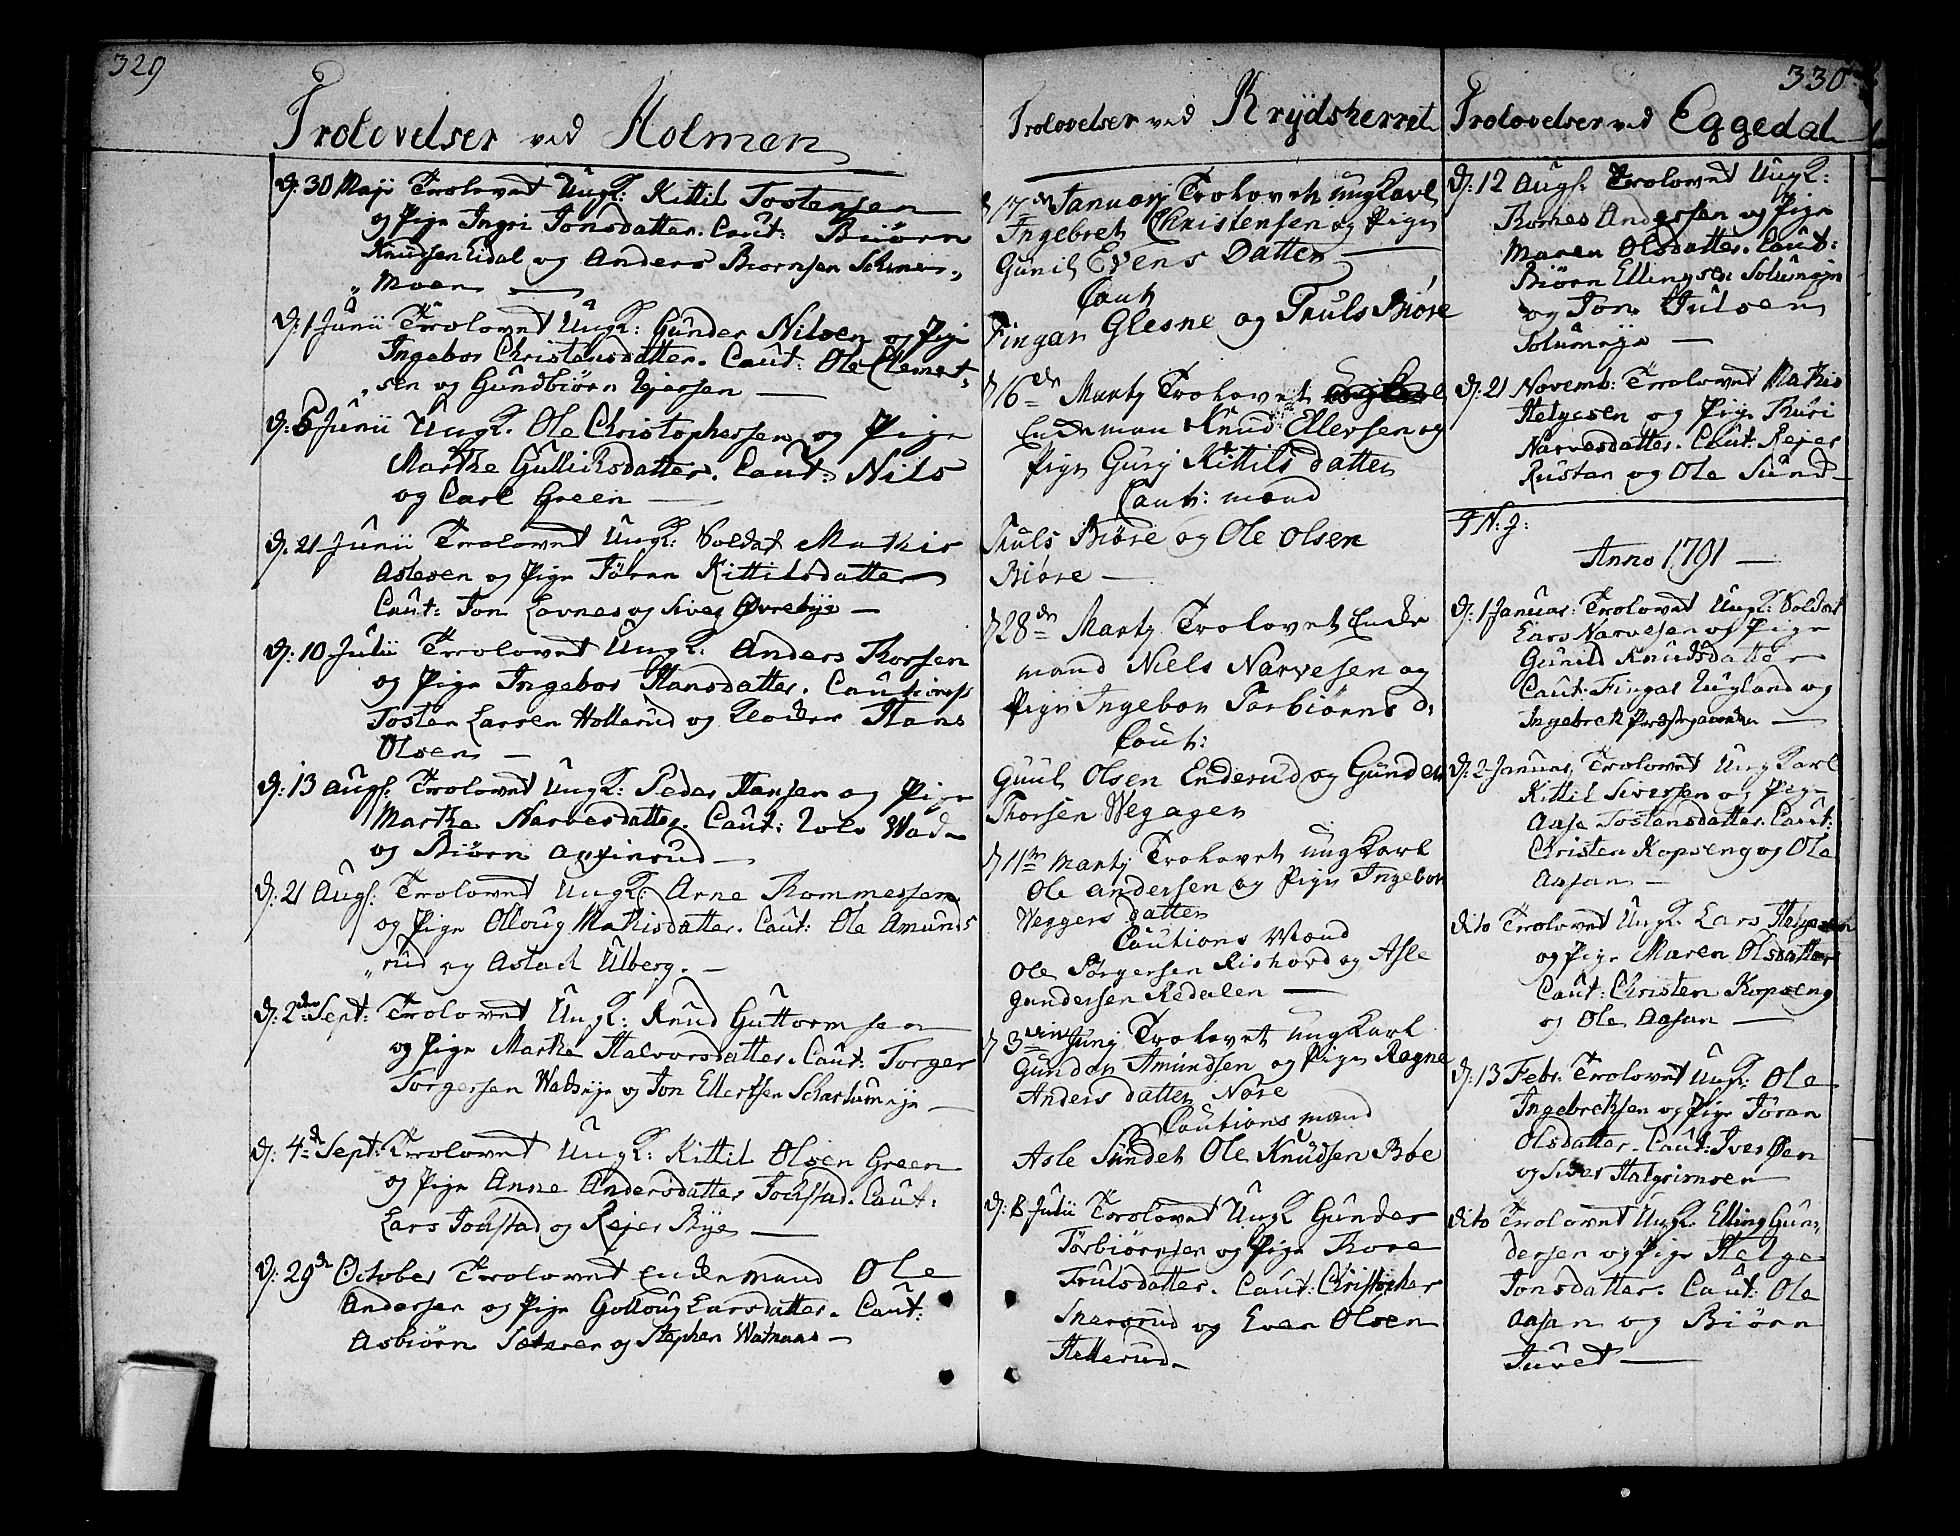 329
Trolovelser ved Holmen
D: 30 Maji Trolovet Ungk: Kittil Tostensen
og Pige Ingri Jonsdatter. Caut: Biörn
Knudsen Eidal og Anders Biörnsen
Moen —
D: 1 Junii Trolovet Ungk: Gunder Nilsen og Pige
Ingebor Christensdatter. Caut: Ole Clemet-
sen og Gundbiörn
D: 5 Junii Ungk. Ole Christophersen og Pige
Marthe Gulliksdatter. Caut: Nils
og Carl Green —
D. 21 Junii Trolovet Ungk: Soldat Mathis
Aslesen og Pige Jöran Kittilsdatter
Caut: Jon Lovnes og Siver Øvrebye —
D: 10 Julii Trolovet Ungk: Anders Thorsen
og Pige Ingebor Hansdatter.
Tosten Larsen Hollerud og Hans
Olsen —
D: 13 Augs: Trolovet Ungk: Peder Hansen og Pige
Marthe Narvesdatter. Caut: Wad
og Biörn Anfinrud —
D: 21 Augs: Trolovet Ungk: Arne Thommessen
og Pige Olloug Mathisdatter. Caut: Ole Amunds
rud og Aslach Ulberg. —
D: 2den Sept: Trolovet Ungk: Knud Guttormsen
og Pige Marthe Halvorsdatter. Caut: Torger
Torgersen og Jon Ellertsen
D: 4de Sept: Trolovet Ungk: Kittil Olsen Green
og Pige Anne Andersdatter Jokstad. Caut:
Lars Jokstad og Rejer Bye —
D: 29de October Trolovet Enckemand Ole
Andersen og Pige Golloug Larsdatter. Caut:
Asbiörn Sæteren og Stephen Watnaas —
Trolovelser ved Krydsherret
d 17de Januarj Trolovet ungkarl
Ingebret Christensen og Pige
Gunil Evens Datter —
Caut
Fingar Glesne og Truls Biöre
d 16de Martj Trolovet ungkarl
Enckeman Knud Ellevsen og
Pige Gurj Kittils datter
Caut: mænd
Truls Biöre og Ole Olsen
Biöre —
d 28de Martj Trolovet Encke
mand Niels Narvesen og
Pige Ingebor Torbiörns d:
Caut:
Guul Olsen Enderud og Gunder
Thorsen Wegagen
d 11te Martj Trolovet ungkarl
Ole Andersen og Pige Ingebor
Weggers datter
Cautions Mænd
Ole Torgersen Rishovd og Asle
Gundersen Redalen —
d 3die Junj Trolovet ungkarl
Gunder Amundsen og Pige Ragne
Anders datter Nore
Cautions mænd
Asle Sundet Ole Knudsen Böe
D: 8 Julii Trolovet Ungk Gunder
Törbiörnsen og Pige Thore
Trulsdatter. Caut: Christopher
Snersrud og Even Olsen
Hellerud
330
Trolovelser ved Eggedal
D: 12 Augs: Trolovet Ungk:
Thomes Andersen og Pige
Maren Olsdatter. Caut:
Biörn Ellingsen Solumoje
og Jon Julsen
Solumoje —
D: 21 Novemb: Trolovet Mathis
Helgesen og Pige Thuri
Narvesdatter. Caut: Rejer
Rustan og Ole Sund
J N: J:
Anno 1791 —
D: 1 Januar: Trolovet Ungk: Soldat
Lars Narvesen og Pige
Gunild Knudsdatter
Caut: Fingar Ugland og
Ingebrek Præstegaarden —
D: 2 Januar, Trolovet Ungkarl
Kittil Siversen og Pige
Aase Tostensdatter. Caut:
Christen Kopseng og Ole
Aasan —
dito Trolovet Ungk: Lars Helgesen
og Pige Maren Olsdatter
Caut: Christen Kopseng
og Ole Aasan —
D: 13 Febr: Trolovet Ungk: Ole
Ingebrektsen og Pige Jöran
Olsdatter. Caut: Iver Øen
og Siver Halgrimsen
dito Trolovet Ungk. Elling Gun-
dersen og Pige Helge
Jonsdatter. Caut: Ole
Aasan og Biörn
Juvet —